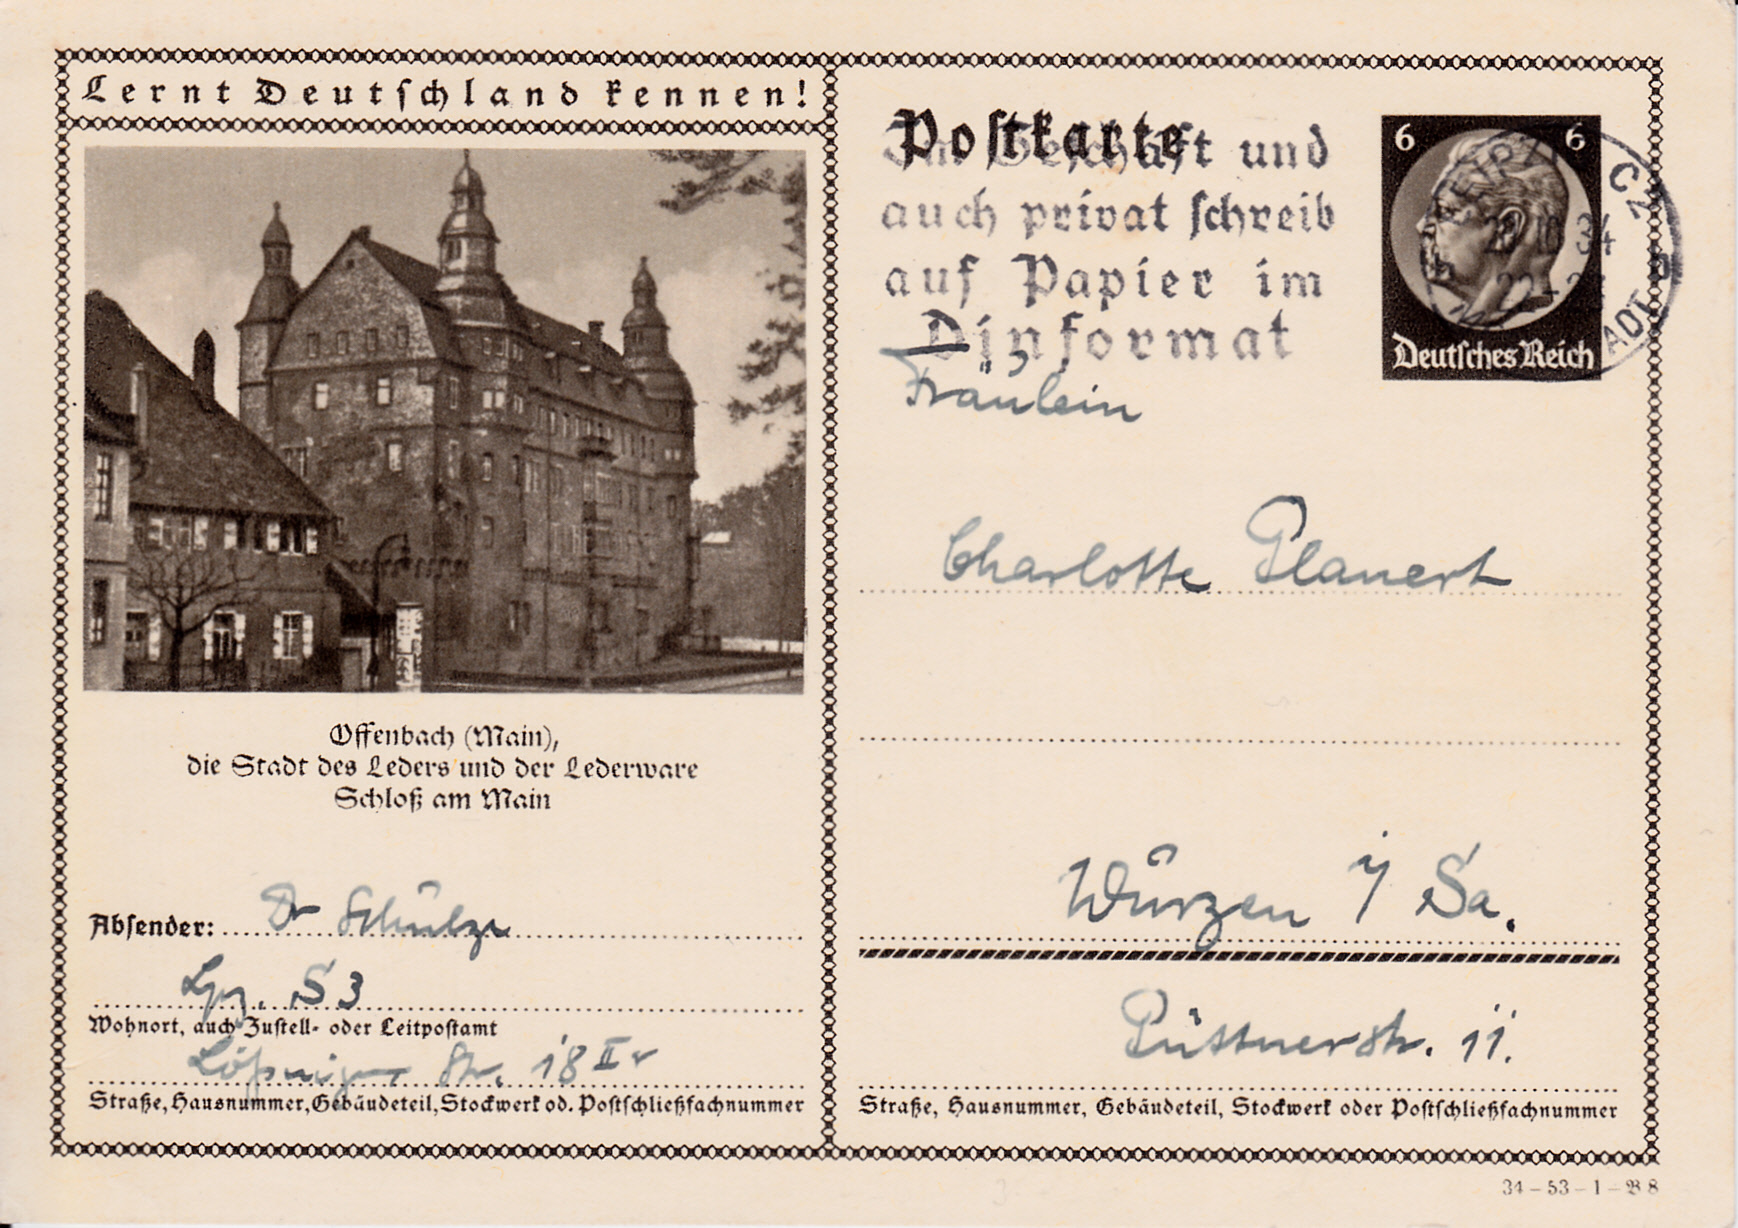 Lernt Deutschland kennen!
Offenbach (Main),
die Stadt des Leders und der Lederware
Schloß am Main
Absender: Dr Schulze
Lpz. S 3
Wohnort, auch Zustell- oder Leitpostamt
Lößniger Str. 18 II r
Straße, Hausnummer, Gebäudeteil, Stockwerk od. Postschließfachnummer
Postkarte
Im Geschäft und
auch privat schreib
auf Papier im
Dinformat
6 6
Deutsches Reich
LEIPZIG C 2
29.10.34
Fräulein
Charlotte Planert
Wurzen i/ Sa.
Püttnerstr. 11.
Straße, Hausnummer, Gebäudeteil, Stockwerk oder Postschließfachnummer
34-53-1-B 8